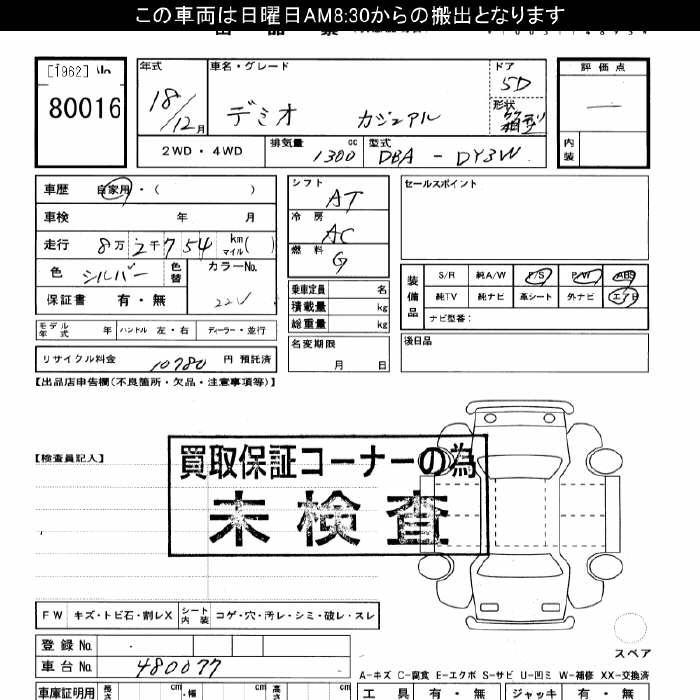 この車両は日曜日AM8:30からの搬出となります
[1962] No
80016
年式
18/12月
車名・グレード
デミオ カジュアル
ドア
5D
形状
箱型
評価点
内装
2WD・4WD
排気量
1300 cc
型式
DBA - DY3W
車歴 自家用・( )
車検 年 月
走行 8万2千754 km マイル( )
色 シルバー 色替 カラーNo.
22V
保証書 有・無
シフト
AT
冷房
AC
燃料
G
乗車定員 名
積載量 kg
総重量 kg
名変期限
月 日
セールスポイント
装備品
S/R 純A/W P/S P/W ABS
純TV 純ナビ 革シート 外ナビ エアB
ナビ型番:
後日品
モデル年式 年 ハンドル 左・右 ディーラー・並行
リサイクル料金 10780 円 預託済
【出品店申告欄(不良箇所・欠品・注意事項等)】
【検査員記入】
買取保証コーナーの為
未検査
FW キズ・トビ石・割レX シート内装 コゲ・穴・汚レ・シミ・破レ・スレ
登録No.
車台No. 480077
スペア
A-キズ C-腐食 E-エクボ S-サビ U-凹ミ W-補修 XX-交換済
車庫証明用 長さ cm ・幅 cm 高さ cm
工具 有・無 ジャッキ 有・無